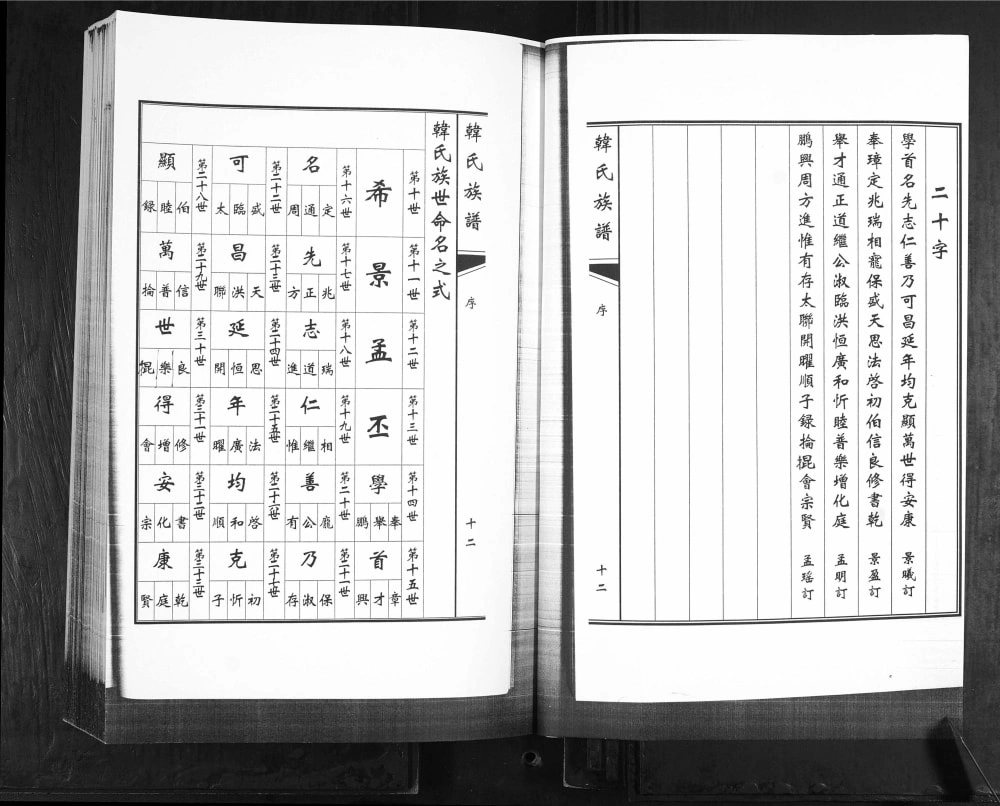 二十字
學首名先志仁善乃可昌延年均克顯萬世得安康 景曦訂
奉璋定兆瑞相寵保盛天思法啓初伯信良修書乾 景盈訂
舉才通正道繼公淑臨洪恒廣和忻睦普樂增化庭 孟明訂
鵬興周方進惟有存太聯開曜順子録掄掍會宗賢 孟瑤訂
韓氏族譜 序 十二
韓氏族譜 序 十二
韓氏族世命名之式
第十世 第十一世 第十二世 第十三世 第十四世 第十五世
希 景 孟 丕 學 首
奉舉鵬 章才興
第十六世 第十七世 第十八世 第十九世 第二十世 第二十一世
名 先 志 仁 善 乃
定通周 兆正方 瑞道進 相繼惟 龐公有 保淑存
第二十二世 第二十三世 第二十四世 第二十五世 第二十六世 第二十七世
可 昌 延 年 均 克
盛臨太 天洪聯 思恒開 法廣曜 啓和順 初忻子
第二十八世 第二十九世 第三十世 第三十一世 第三十二世 第三十三世
顯 萬 世 得 安 康
伯睦録 信普掄 良樂掍 修增會 書化宗 乾庭賢